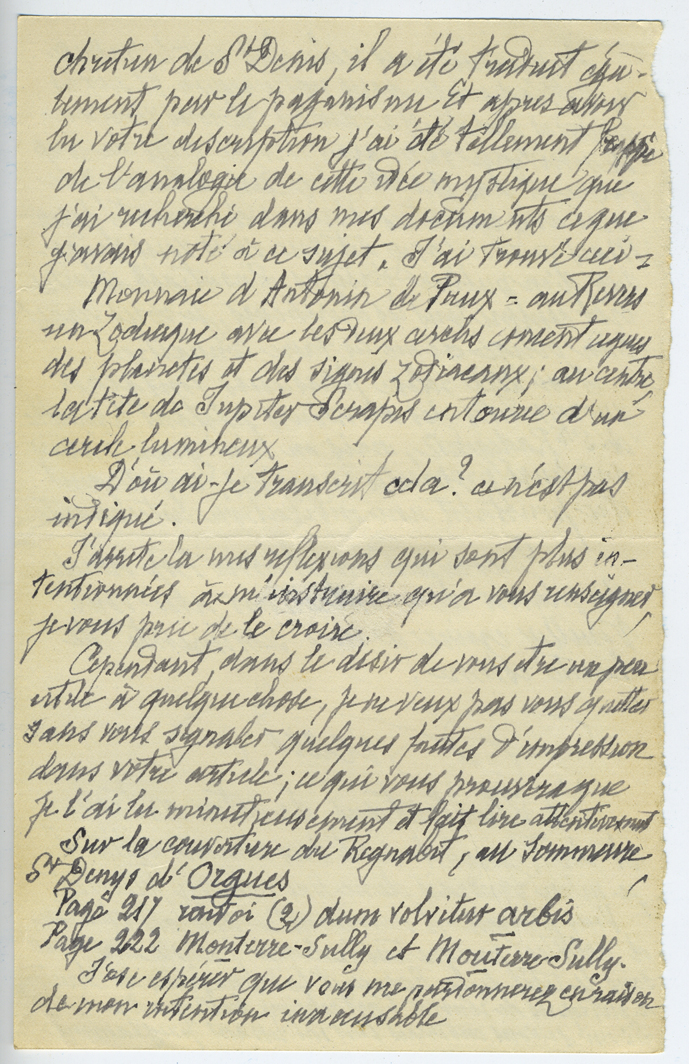 chretien de St Denis, il a été traduit éga-
lement par le paganisme Et apres avoir
lu votre description j'ai été tellement frappé
de l'analogie de cette idée mystique que
j'ai recherché dans mes documents ce que
j'avais noté à ce sujet. J'ai trouvé ceci =
Monnaie d'Antonin le Pieux = au Revers
un Zodiaque avec les deux cercles concentriques
des planetes et des signes zodiacaux; au centre,
la tête de Jupiter Serapis entouree d'un
cercle lumineux
D'où ai-je transcrit cela? ce n'est pas
indiqué.
J'arrete la mes reflexions qui sont plus in-
tentionnées à m'instruire qu'a vous renseigner,
je vous prie de le croire.
Cependant, dans le désir de vous etre un peu
utile à quelque chose, je ne veux pas vous quitter
sans vous signaler quelques fautes d'impression
dans votre article; ce qui vous prouvera que
je l'ai lu minutieusement et fait lire attentivement
Sur la couverture du Regnabit, au Sommaire,
St Denys d'Orgues
Page 217 renvoi (2) dum volvitur arbis
Page 222 Monterre-Sully et Mouterre-Sully.
J'ose espérer que vous me pardonnerez en raison
de mon intention inaccusable